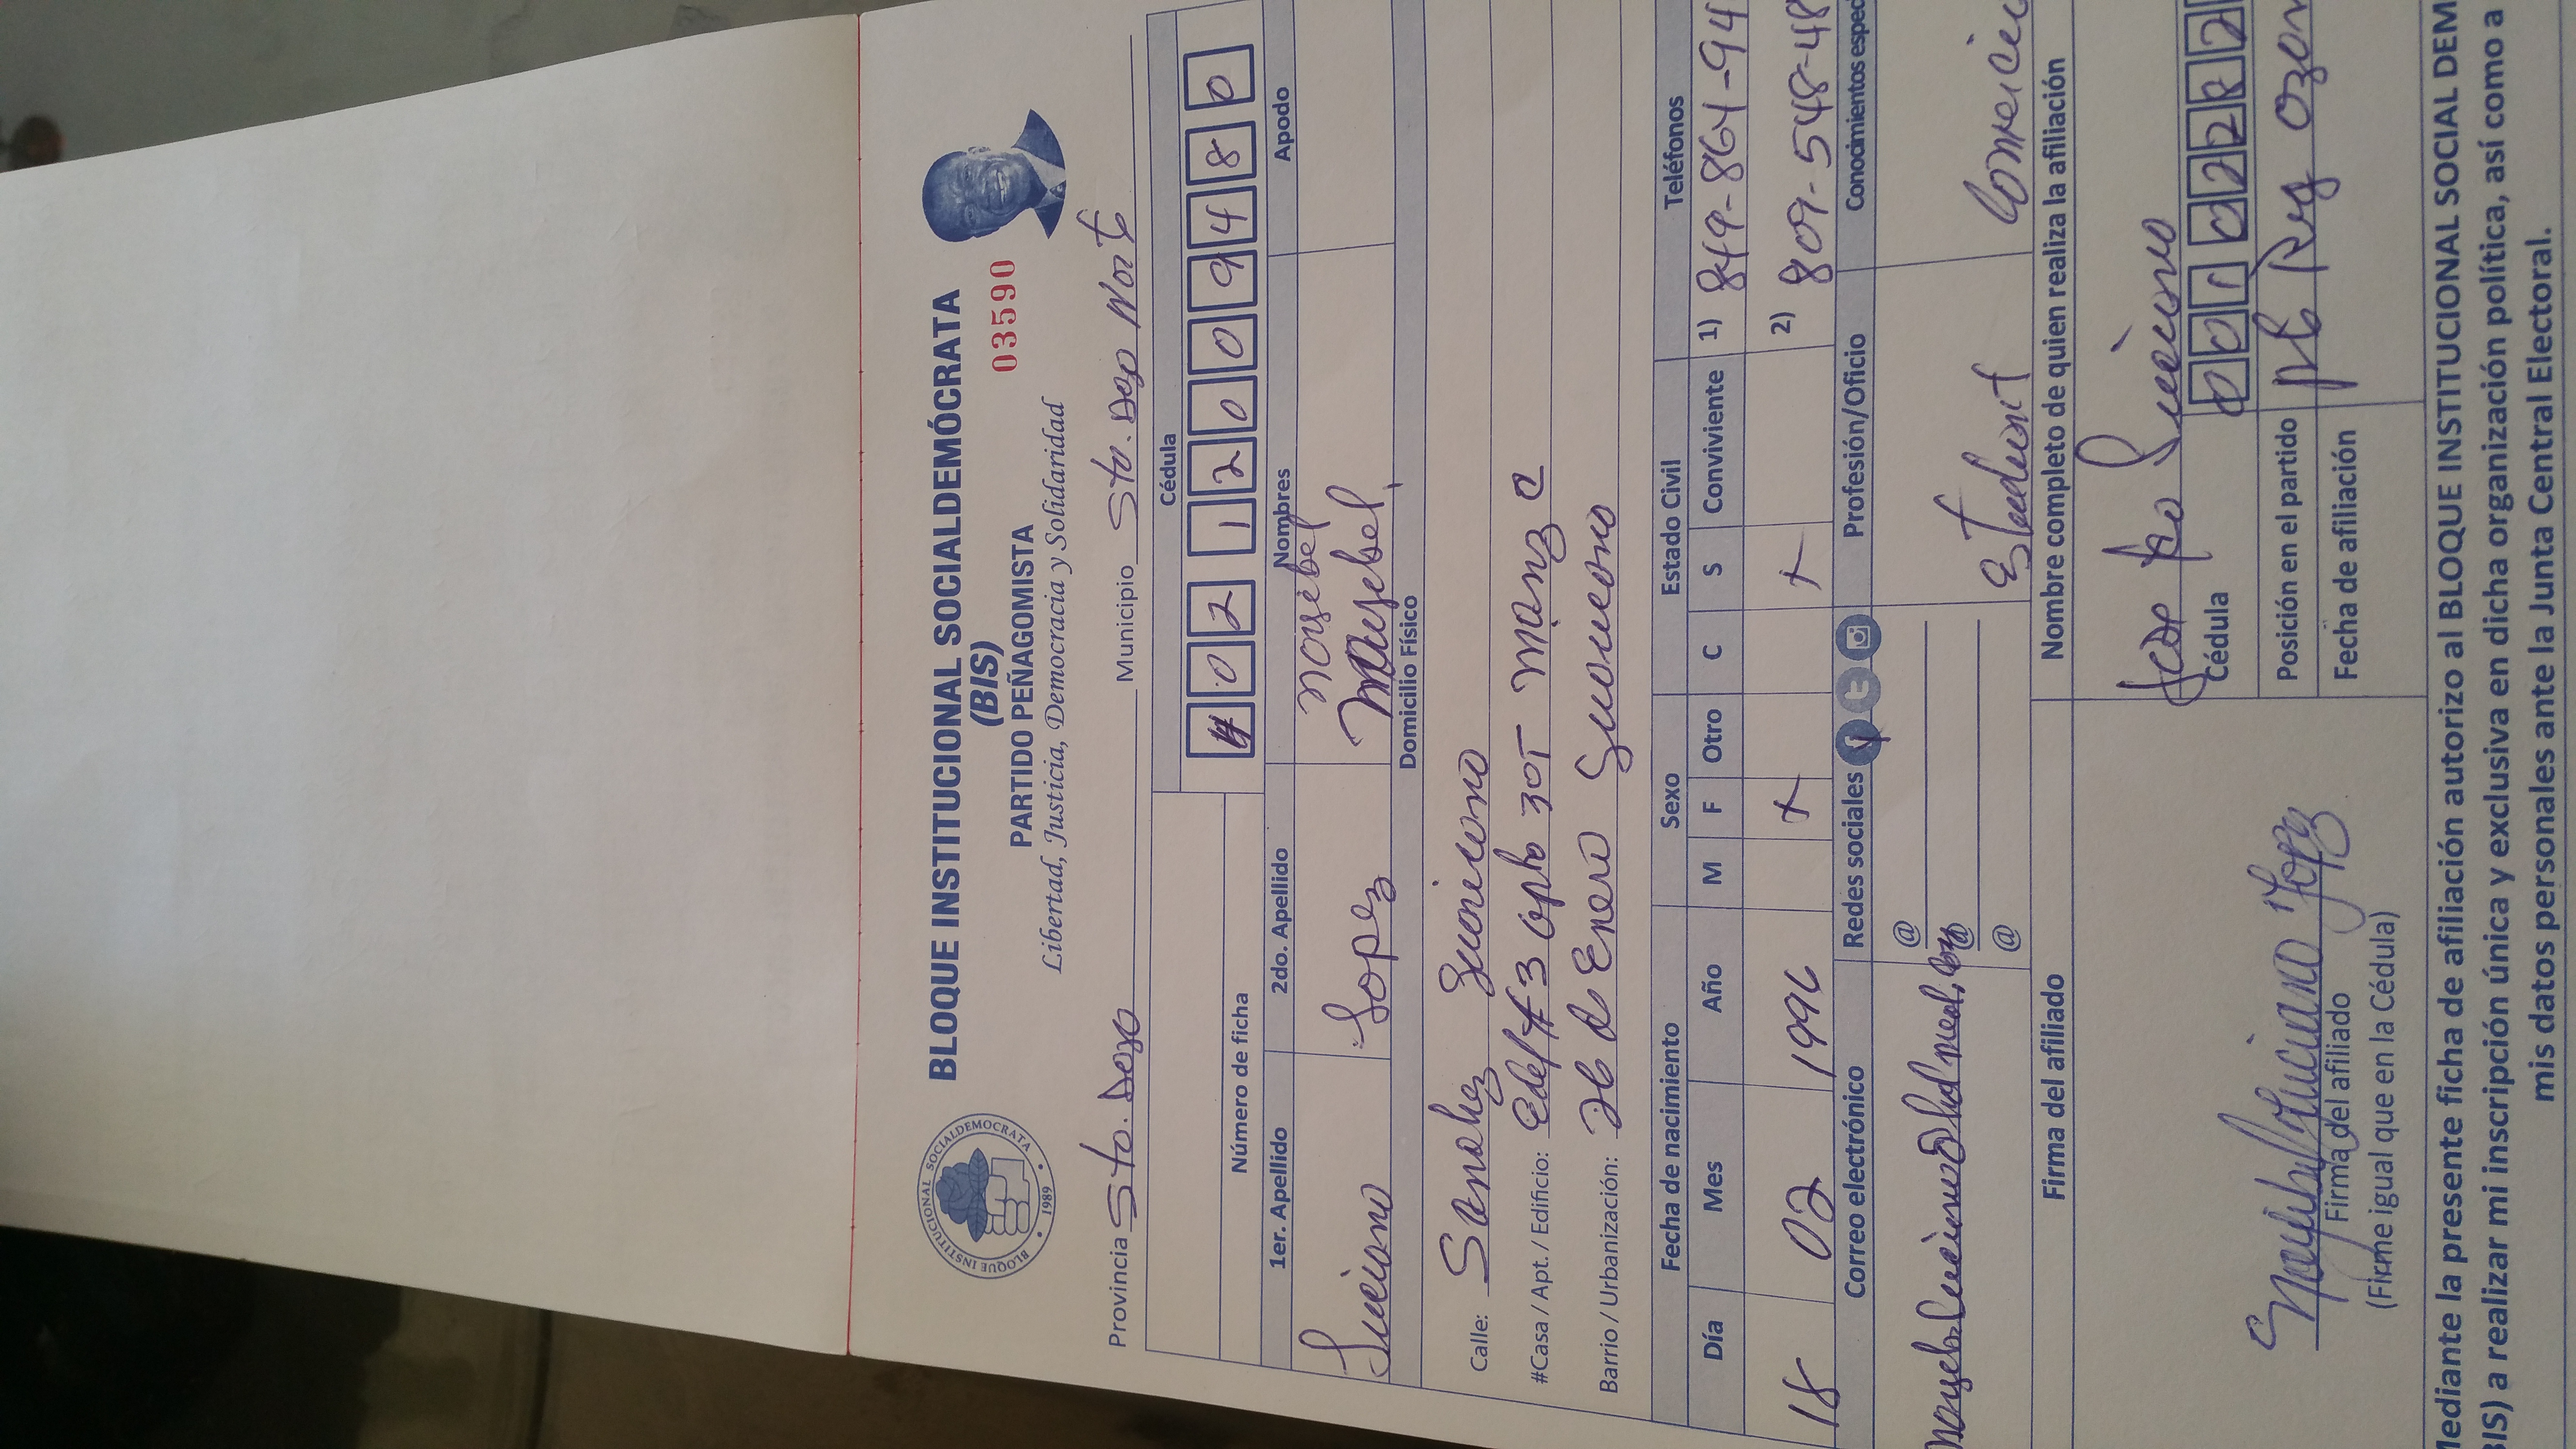 BLOQUE INSTITUCIONAL SOCIALDEMOCRATA
• 1989 •
BLOQUE INSTITUCIONAL SOCIALDEMÓCRATA
(BIS)
PARTIDO PEÑAGOMISTA
Libertad, Justicia, Democracia y Solidaridad
03590
Provincia Sto. Dgo Municipio Sto. Dgo Norte
Número de ficha
Cédula
4 0 2 1 2 0 0 9 4 8 0
1er. Apellido 2do. Apellido Nombres Apodo
Luciano Lopez
Domicilio Físico
Calle: Sanchez Luciano
#Casa / Apt. / Edificio: Edif # 3 apto 301 Manz C
Barrio / Urbanización: 26 de Enero
Fecha de nacimiento Sexo Estado Civil Teléfonos
Día Mes Año M F Otro C S Conviviente 1) 849-864-94
18 02 1996 + + 2) 809-548-48
Correo electrónico Redes sociales Profesión/Oficio Conocimientos espec
@
@
@
Firma del afiliado Nombre completo de quien realiza la afiliación
Luciano
Luciano Lopez
Cédula 0 0 1 0 2 2 8 2
Firma del afiliado
(Firme igual que en la Cédula)
Posición en el partido
Fecha de afiliación
Mediante la presente ficha de afiliación autorizo al BLOQUE INSTITUCIONAL SOCIAL DEM
BIS) a realizar mi inscripción única y exclusiva en dicha organización política, así como a
mis datos personales ante la Junta Central Electoral.